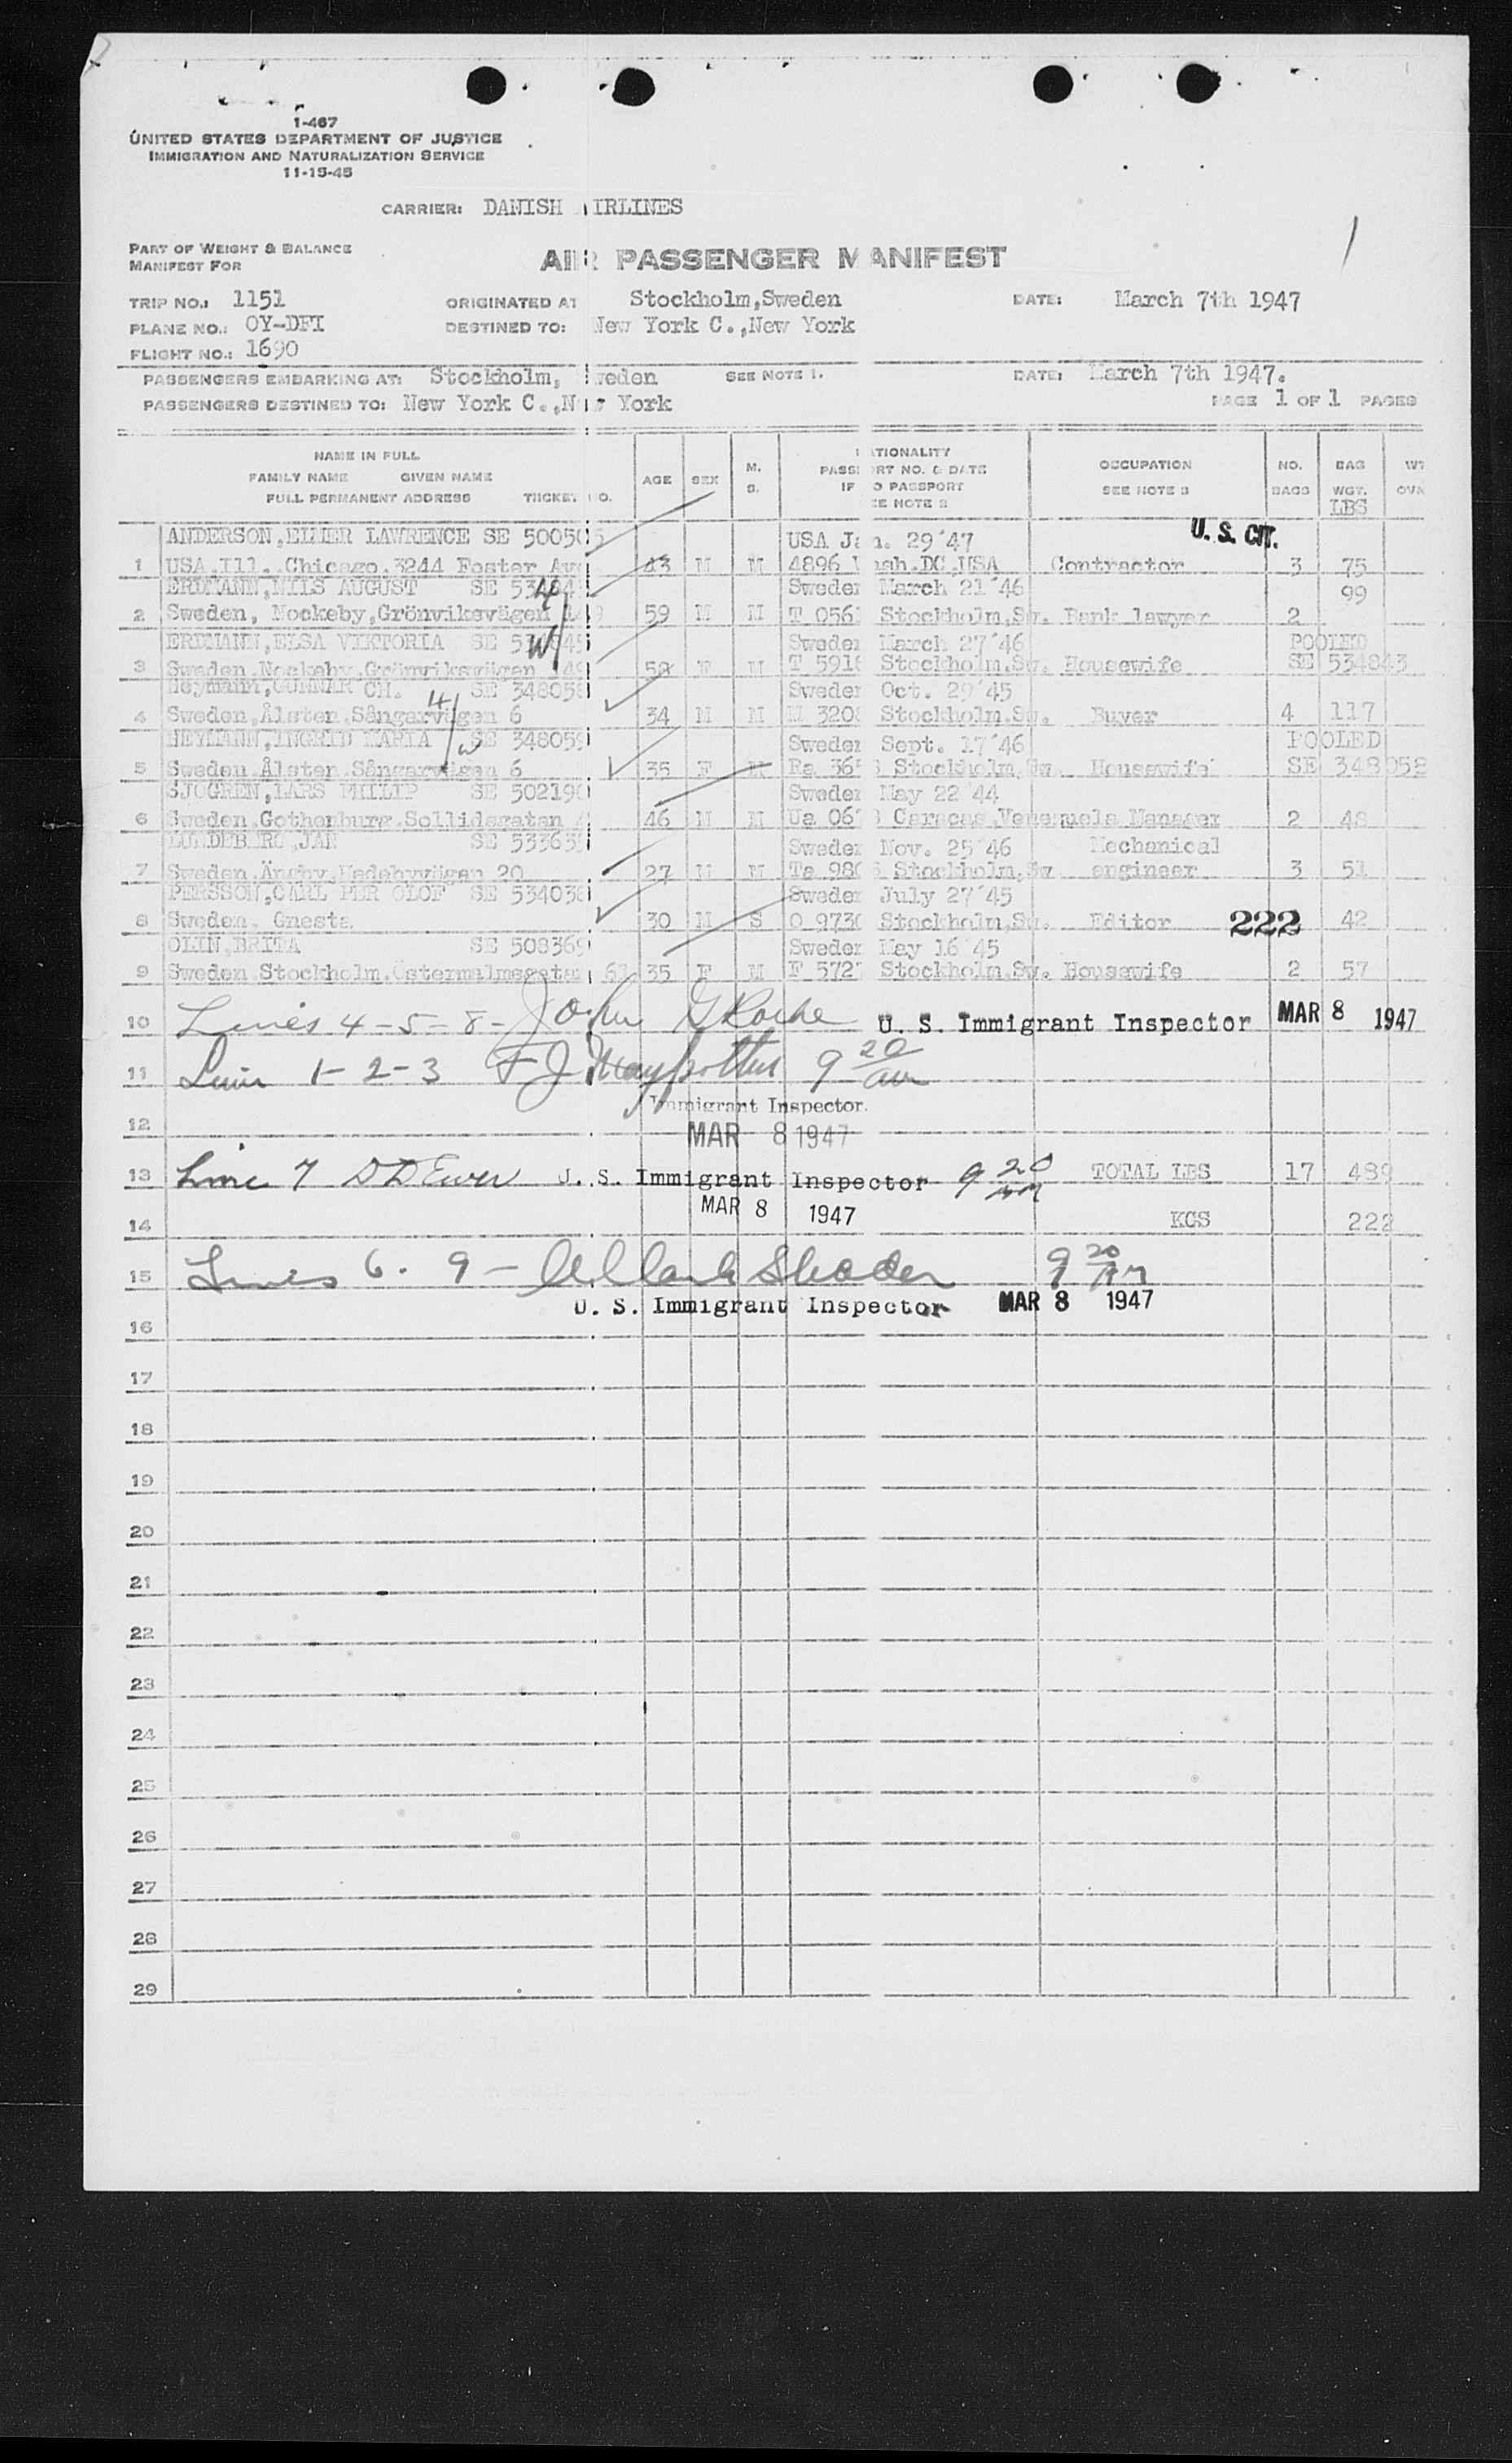 1-467
UNITED STATES DEPARTMENT OF JUSTICE
IMMIGRATION AND NATURALIZATION SERVICE
11-15-45
CARRIER: DANISH AIRLINES
PART OF WEIGHT & BALANCE
MANIFEST FOR
AIR PASSENGER MANIFEST
TRIP NO.: 1151 ORIGINATED AT Stockholm,Sweden DATE: March 7th 1947
PLANE NO.: OY-DFI DESTINED TO: New York C.,New York
FLIGHT NO.: 1690
PASSENGERS EMBARKING AT: Stockholm, Sweden SEE NOTE 1. DATE: March 7th 1947.
PASSENGERS DESTINED TO: New York C.,New York PAGE 1 OF 1 PAGES
NAME IN FULL
FAMILY NAME GIVEN NAME
FULL PERMANENT ADDRESS TICKET NO.
AGE SEX M. S.
NATIONALITY
PASSPORT NO. & DATE
IF NO PASSPORT
SEE NOTE 2
OCCUPATION
SEE NOTE 3
NO. BAGS
BAG WGT. LBS
ANDERSON,ELMER LAWRENCE SE 500505 USA Jan. 29'47 U. S. CIT.
1 USA.Ill..Chicago.3244 Foster Ave 43 M M 4896 Wash.DC.USA Contractor 3 75
ERDMANN,NILS AUGUST SE Sweden March 21'46 99
2 Sweden, Nockeby,Grönviksvägen 59 M M T 056 Stockholm,Sw. Bank lawyer 2
ERDMANN,ELSA VIKTORIA SE Sweden March 27'46 POOLED
3 Sweden.Nockeby.Grönviksvägen F M T 591 Stockholm.Sw. Housewife SE 534843
Heymann,GUNNAR CH. SE 348058 Sweden Oct. 29'45
4 Sweden,Ålsten.Sångarvägen 6 34 M M M 320 Stockholm.Sw. Buyer 4 117
HEYMANN,INGRID MARIA SE 348059 Sweden Sept. 17'46 POOLED
5 Sweden.Ålsten.Sångarvägen 6 35 F M Ra 36 Stockholm.Sw. Housewife SE 348058
SJÖGREN,LARS PHILIP SE 502190 Sweden May 22'44
6 Sweden.Gothenburg.Sollidsgatan 46 M M Ua 06 Caracas.Venezuela Manager 2 48
LUNDEBERG,JAN SE 53363 Sweden Nov. 25'46 Mechanical
7 Sweden.Ängby. 20 27 M M Ta 980 Stockholm,Sw engineer 3 51
PERSSON,CARL PER OLOF SE 534038 Sweden July 27'45
8 Sweden. Gnesta 30 M S O 973 Stockholm,Sw. Editor 222 42
OLIN,BRITA SE 508369 Sweden May 16'45
9 Sweden.Stockholm.Östermalmsgatan 61 35 F M F 572 Stockholm,Sw. Housewife 2 57
10 Lines 4-5-8- John G Roche U. S. Immigrant Inspector MAR 8 1947
11 Lines 1-2-3 9 20 am
Immigrant Inspector.
12 MAR 8 1947
13 Line 7 U. S. Immigrant Inspector 9 20 am TOTAL LBS 17 489
MAR 8 1947
14 KGS 222
15 Lines 6. 9 - 9 20 am
U. S. Immigrant Inspector MAR 8 1947
16
17
18
19
20
21
22
23
24
25
26
27
28
29